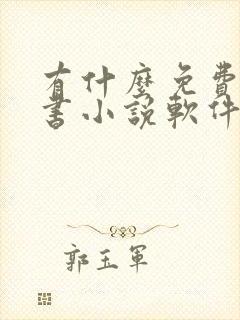 有什麼免費
書小說軟件
郭玉軍